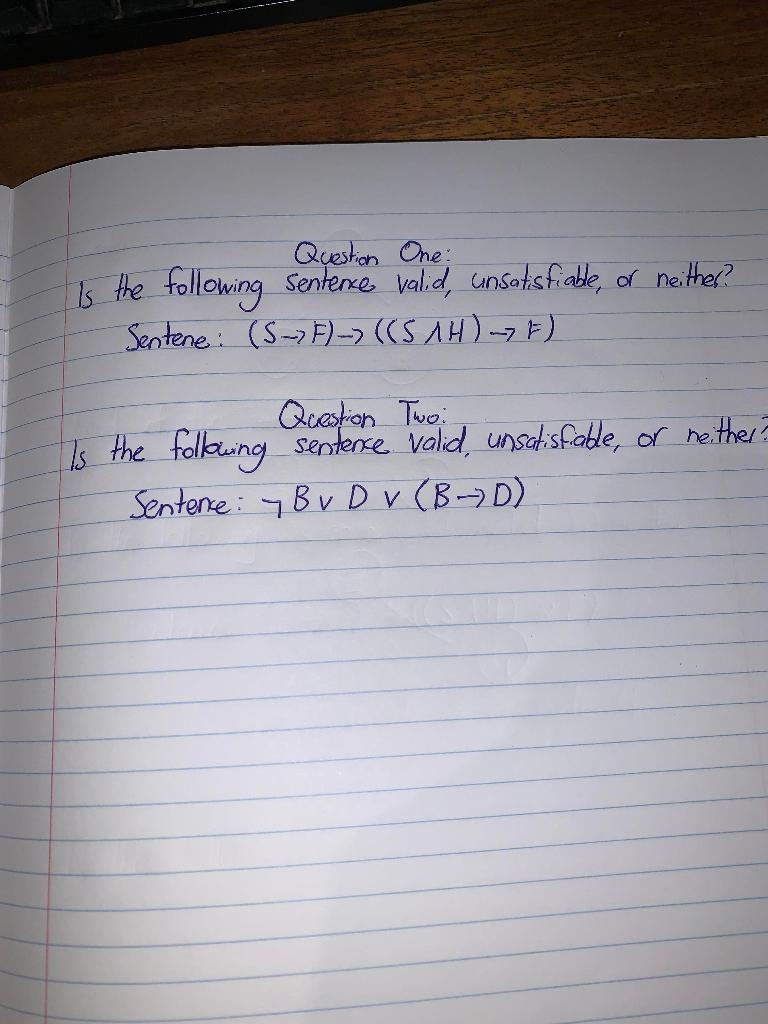 Question One:
Is the following sentence valid, unsatisfiable, or neither?
Sentene: (S→F)→((S∧H)→F)
Question Two:
Is the following sentence valid, unsatisfiable, or neither?
Sentence: ¬B∨D∨(B→D)